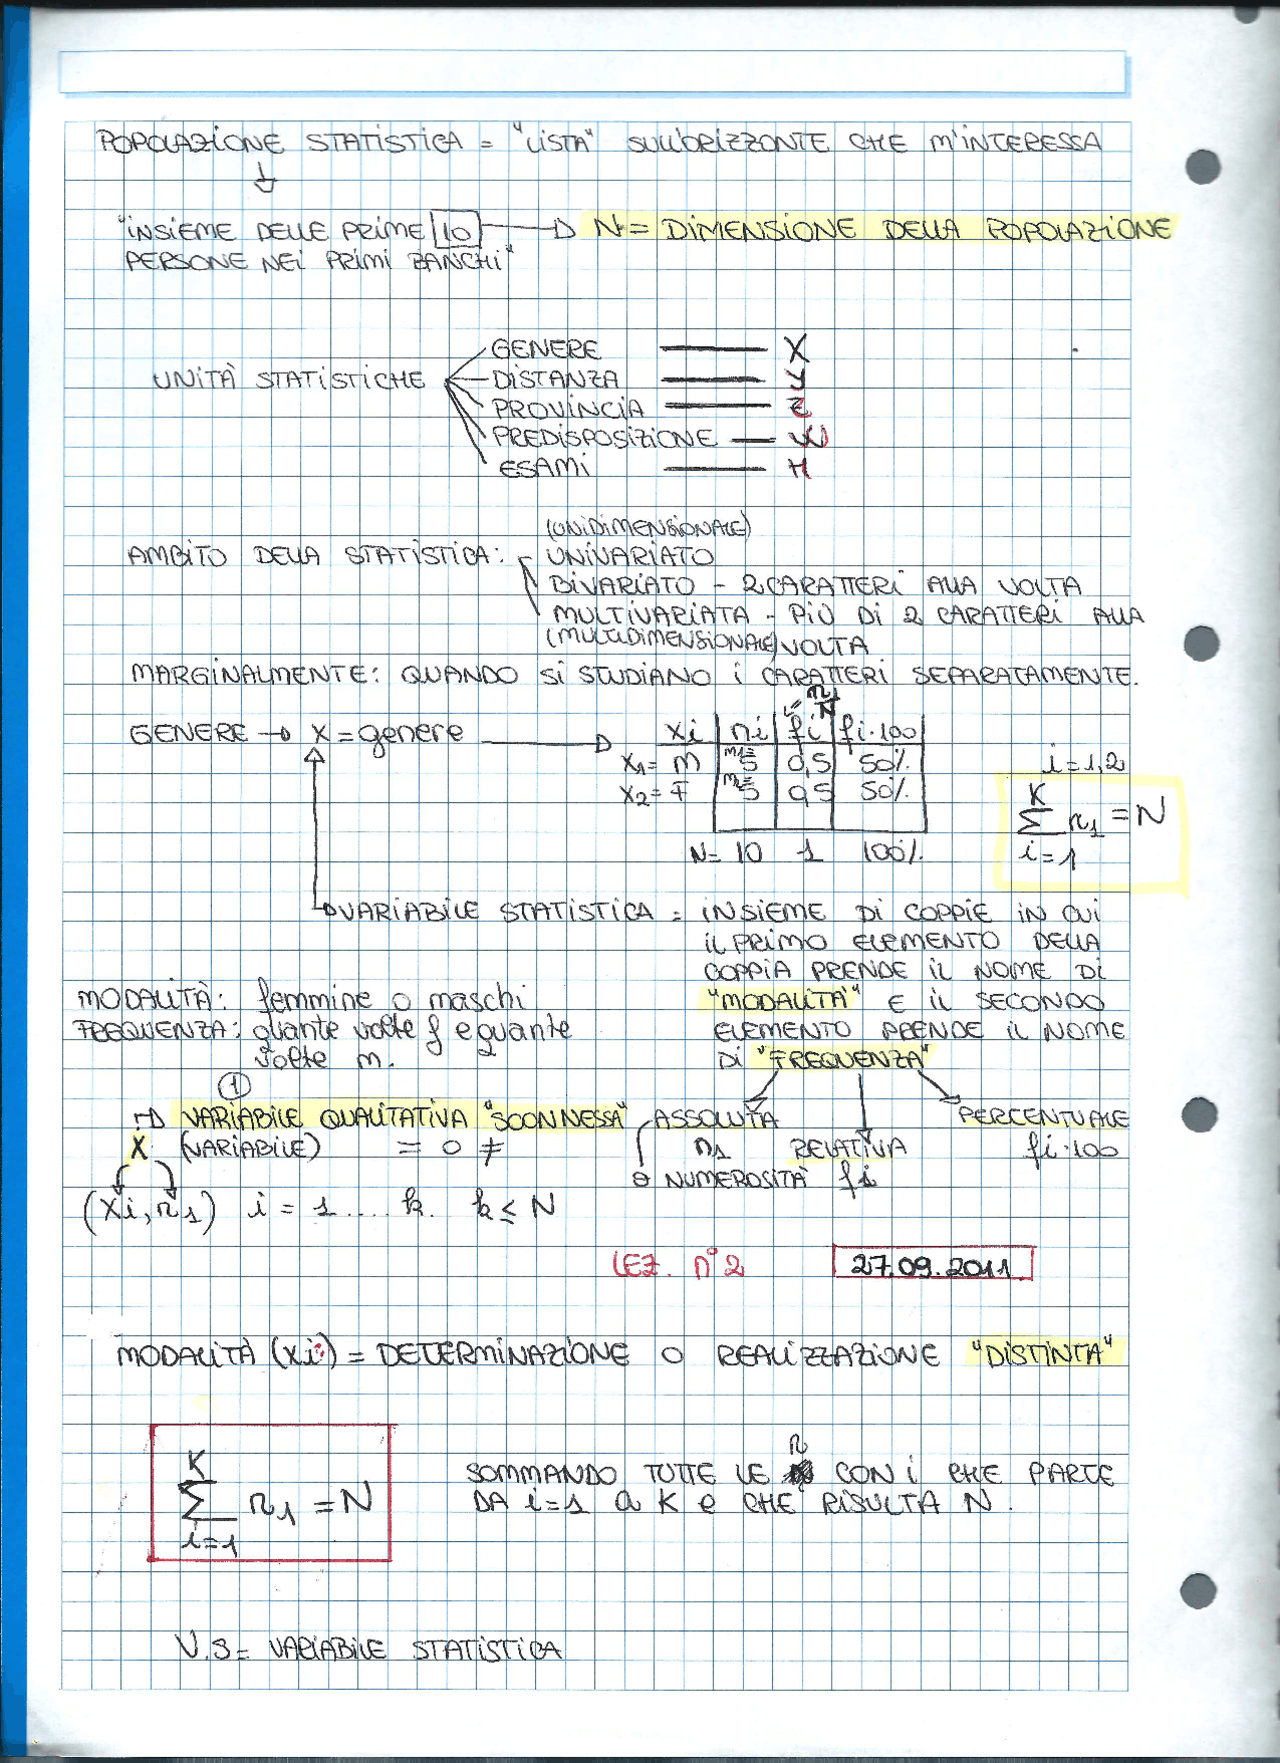 POPOLAZIONE STATISTICA = "LISTA" SULL'ORIZZONTE CHE M'INTERESSA
"INSIEME DELLE PRIME 10 → N = DIMENSIONE DELLA POPOLAZIONE
PERSONE NEI PRIMI BANCHI"
GENERE — X
UNITÀ STATISTICHE DISTANZA — Y
PROVINCIA — Z
PREDISPOSIZIONE — W
ESAMI — H
(UNIDIMENSIONALE)
AMBITO DELLA STATISTICA: UNIVARIATO
BIVARIATO - 2 CARATTERI ALLA VOLTA
MULTIVARIATA - PIÙ DI 2 CARATTERI ALLA
(MULTIDIMENSIONALE) VOLTA
MARGINALMENTE: QUANDO SI STUDIANO I CARATTERI SEPARATAMENTE.
GENERE → X = genere → xi | ni | fi | fi·100
X1 = M 5 0,5 50% i=1,2
X2 = F 5 0,5 50%
N = 10 1 100%
K
Σ n1 = N
i=1
VARIABILE STATISTICA = INSIEME DI COPPIE IN CUI
IL PRIMO ELEMENTO DELLA
COPPIA PRENDE IL NOME DI
"MODALITÀ" E IL SECONDO
ELEMENTO PRENDE IL NOME
DI "FREQUENZA"
MODALITÀ: femmine o maschi
FREQUENZA: quante volte f e quante
volte m.
1
VARIABILE QUALITATIVA "SCONNESSA" ASSOLUTA PERCENTUALE
X (VARIABILE) = o ≠ n1 RELATIVA fi·100
o NUMEROSITÀ fi
(Xi, n1) i = 1 .... k. k ≤ N
LEZ. n°2 27.09.2011
MODALITÀ (xi) = DETERMINAZIONE O REALIZZAZIONE "DISTINTA"
K
Σ n1 = N
i=1
SOMMANDO TUTTE LE n CON i CHE PARTE
DA i=1 a K e CHE RISULTA N.
V.S = VARIABILE STATISTICA